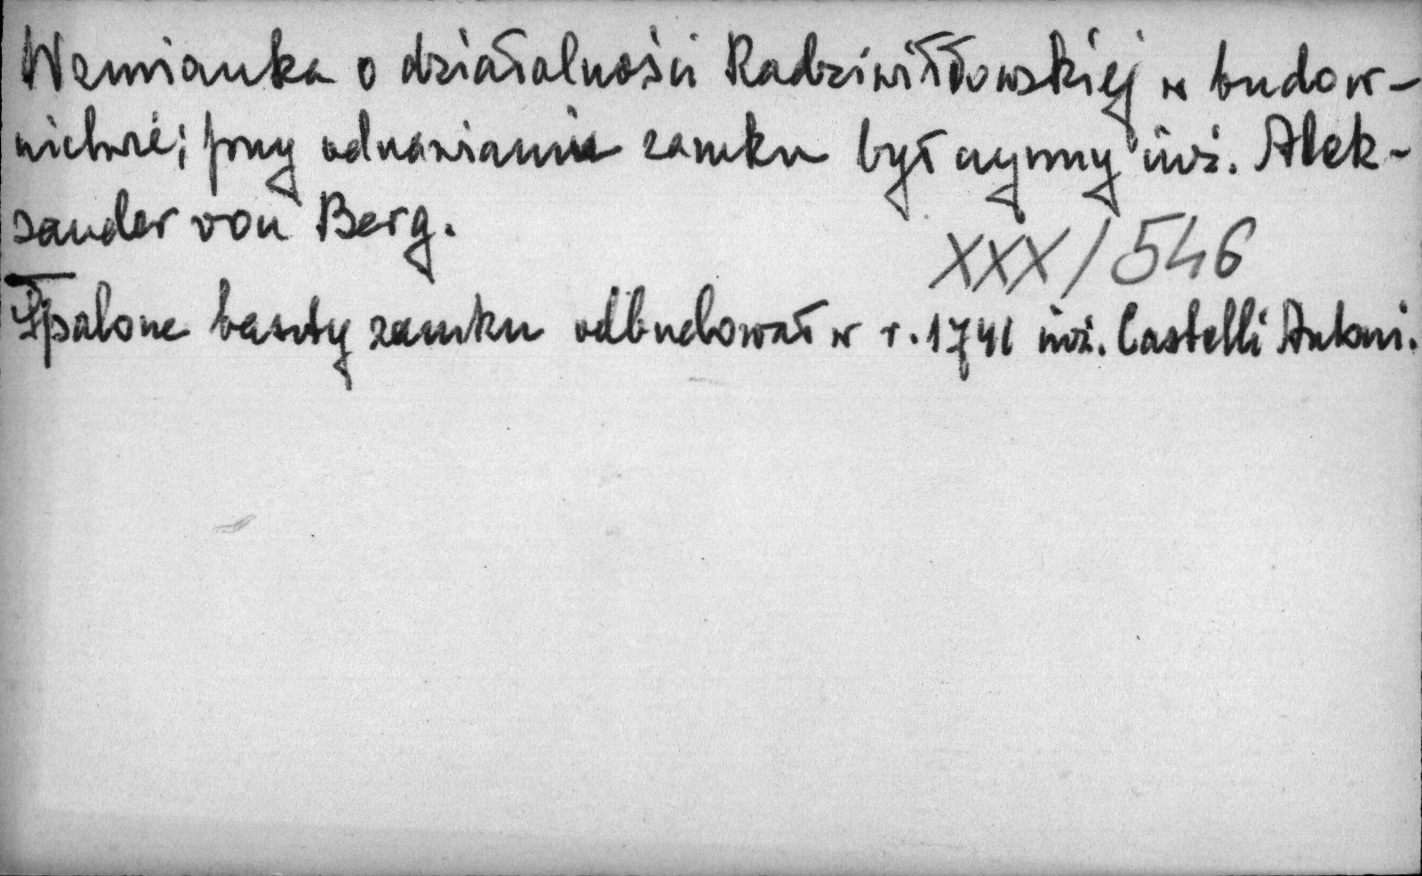 Wzmianka o działalności Radziwiłłowskiej w budow-
nictwie; przy odnawianiu zamku był czynny inż. Alek-
sander von Berg.
XXX/546
Spalone baszty zamku odbudował w r. 1741 inż. Castelli Antoni.